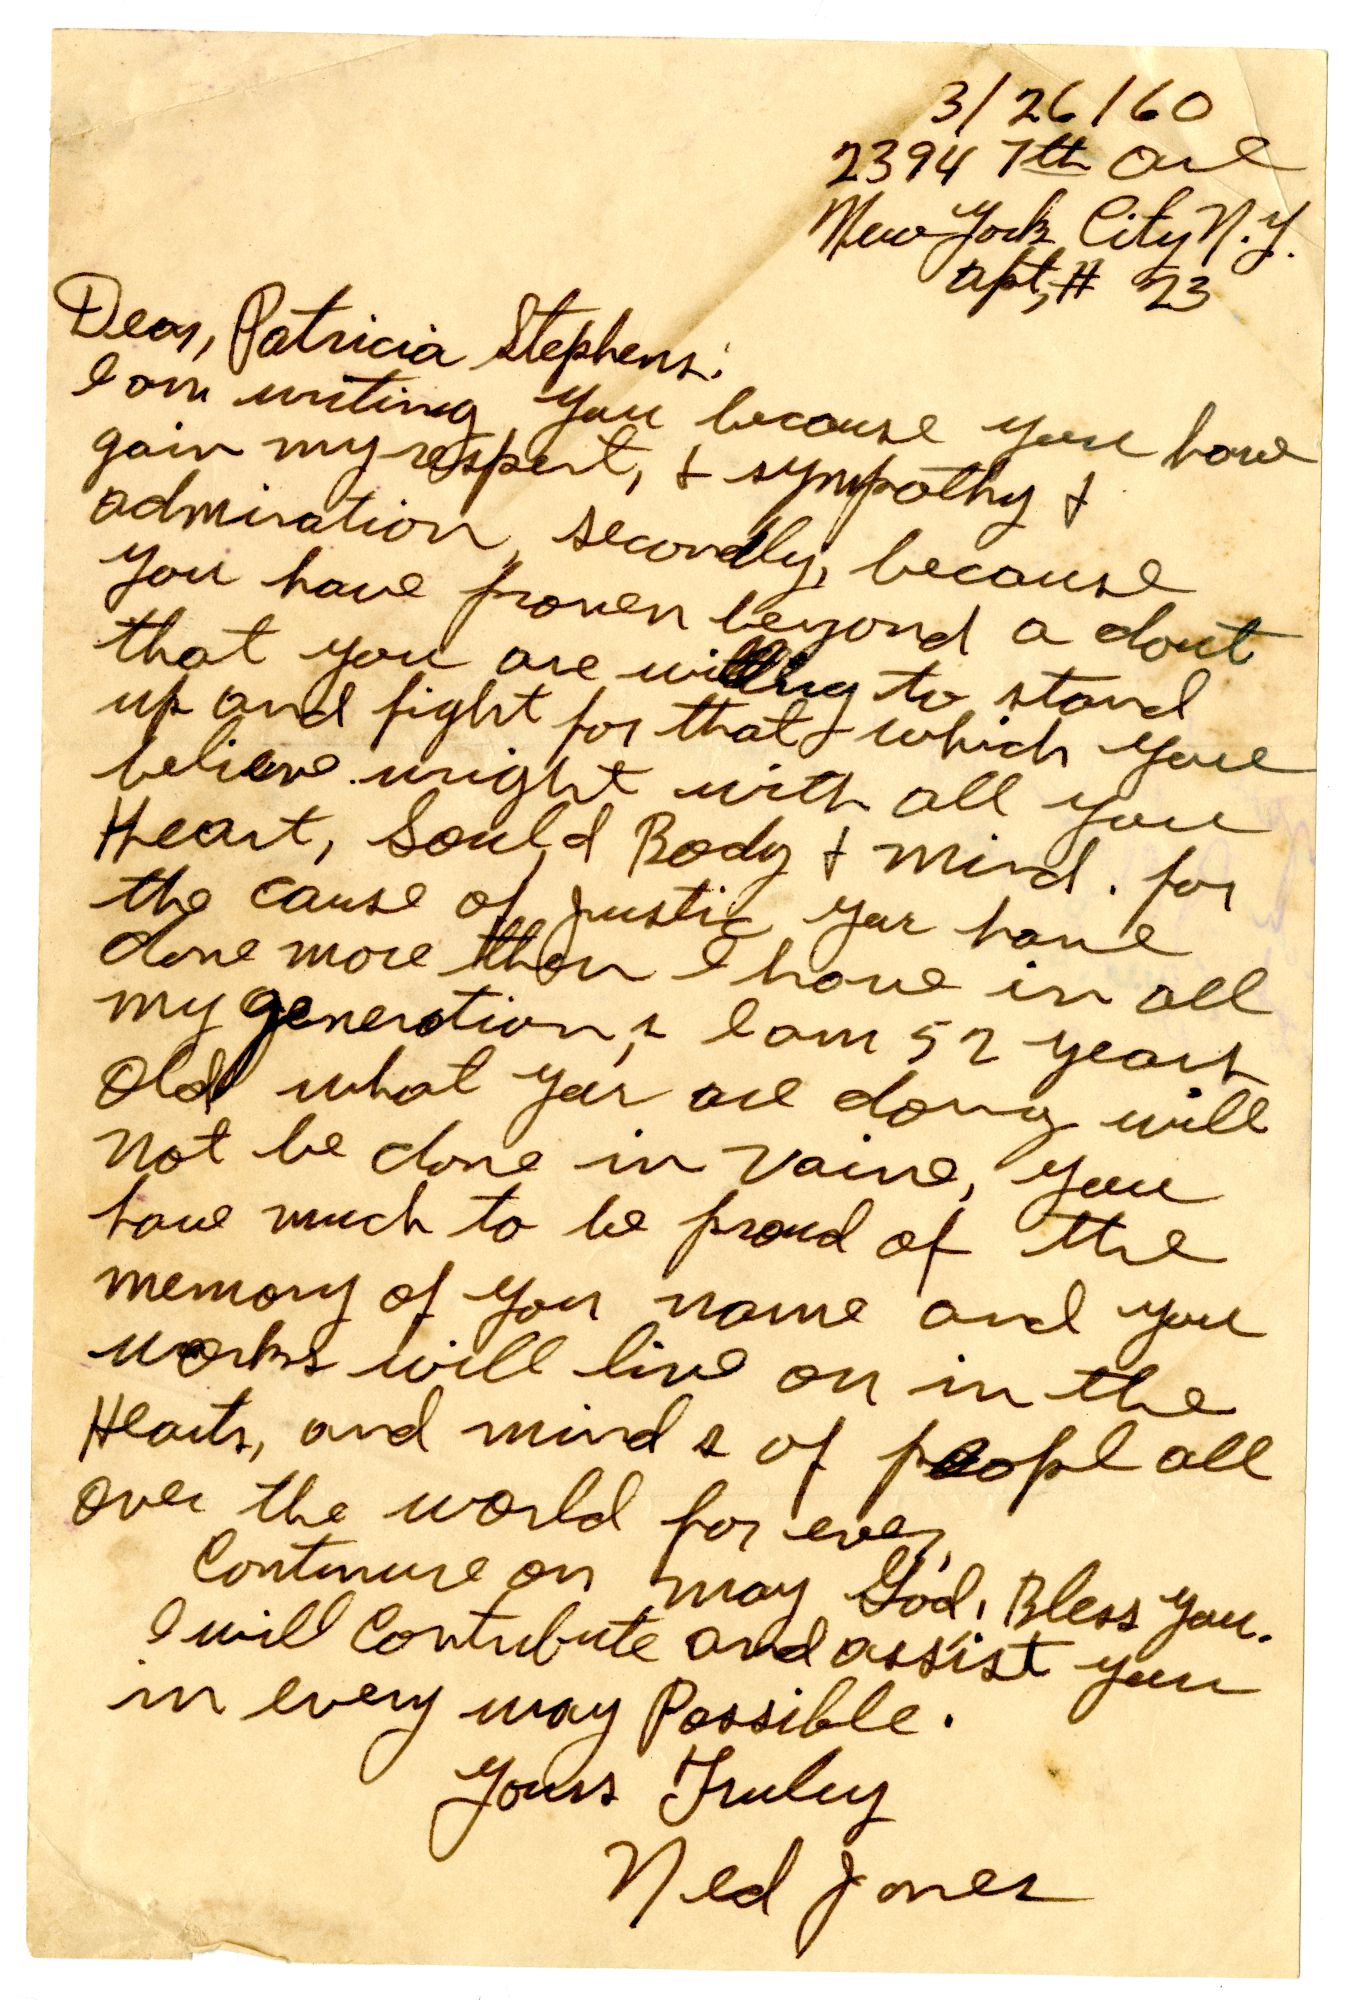 3/26/60
2394 7th Ave
New York City N.Y.
apt, # 23
Dear, Patricia Stephens:
I am writing you because you have
gain my respect, + sympathy +
admiration, secondly, because
you have proven beyond a dout
that you are willing to stand
up and fight for that which you
believe wright with all you
Heart, Sould Body + mind. for
the cause of justic you have
done more then I have in all
my generations, I am 52 years
Old what you are doing will
not be done in vaine, you
have much to be proud of the
memory of your name and you
works will live on in the
Hearts, and minds of peopl all
over the world for ever,
Continure on may God, Bless you.
I will Contribute and assist you
in every way Possible.
Yours Truley
Ned Jones